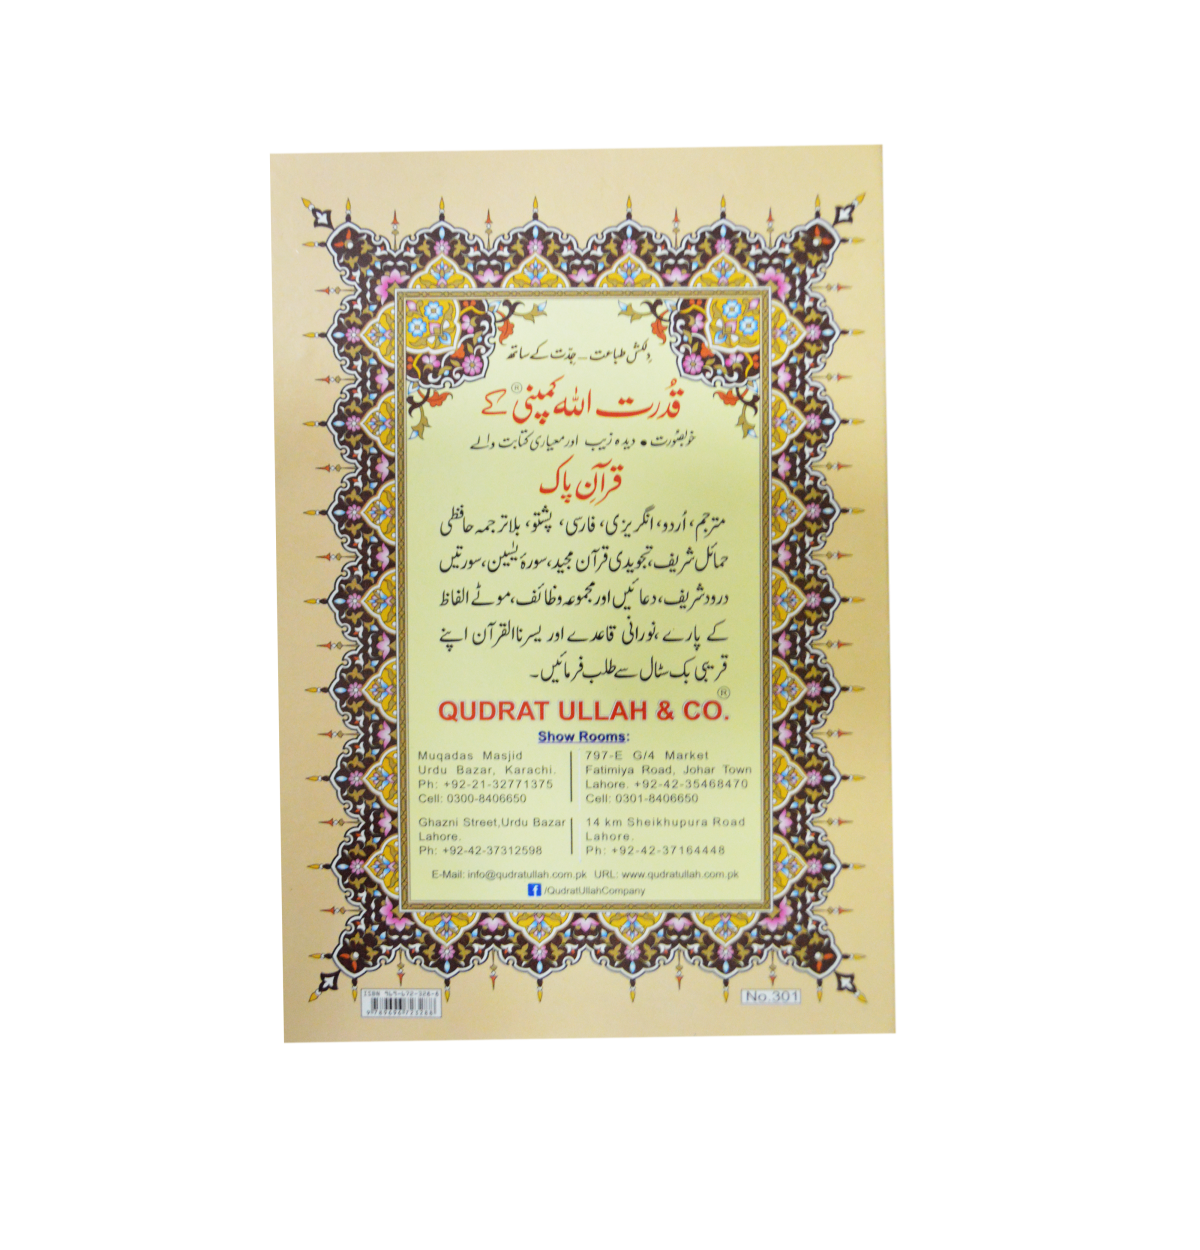 دلکش طباعت ۔ جدّت کے ساتھ
قُدرت اللہ کمپنی® کے
خوبصُورت • دیدہ زیب اور معیاری کتابت والے
قرآنِ پاک
مترجم، اُردو، انگریزی، فارسی، پشتو، بلاترجمہ حافظی
حمائل شریف، تجویدی قرآن مجید، سورۂ یٰسین، سورتیں
درود شریف، دعائیں اور مجموعہ وظائف، موٹے الفاظ
کے پارے، نورانی قاعدے اور یسرنا القرآن اپنے
قریبی بک سٹال سے طلب فرمائیں۔
QUDRAT ULLAH & CO.®
Show Rooms:
Muqadas Masjid
Urdu Bazar, Karachi.
Ph: +92-21-32771375
Cell: 0300-8406650
797-E G/4 Market
Fatimiya Road, Johar Town
Lahore. +92-42-35468470
Cell: 0301-8406650
Ghazni Street,Urdu Bazar
Lahore.
Ph: +92-42-37312598
14 km Sheikhupura Road
Lahore.
Ph: +92-42-37164448
E-Mail: info@qudratullah.com.pk URL: www.qudratullah.com.pk
f /QudratUllahCompany
ISBN
No.301